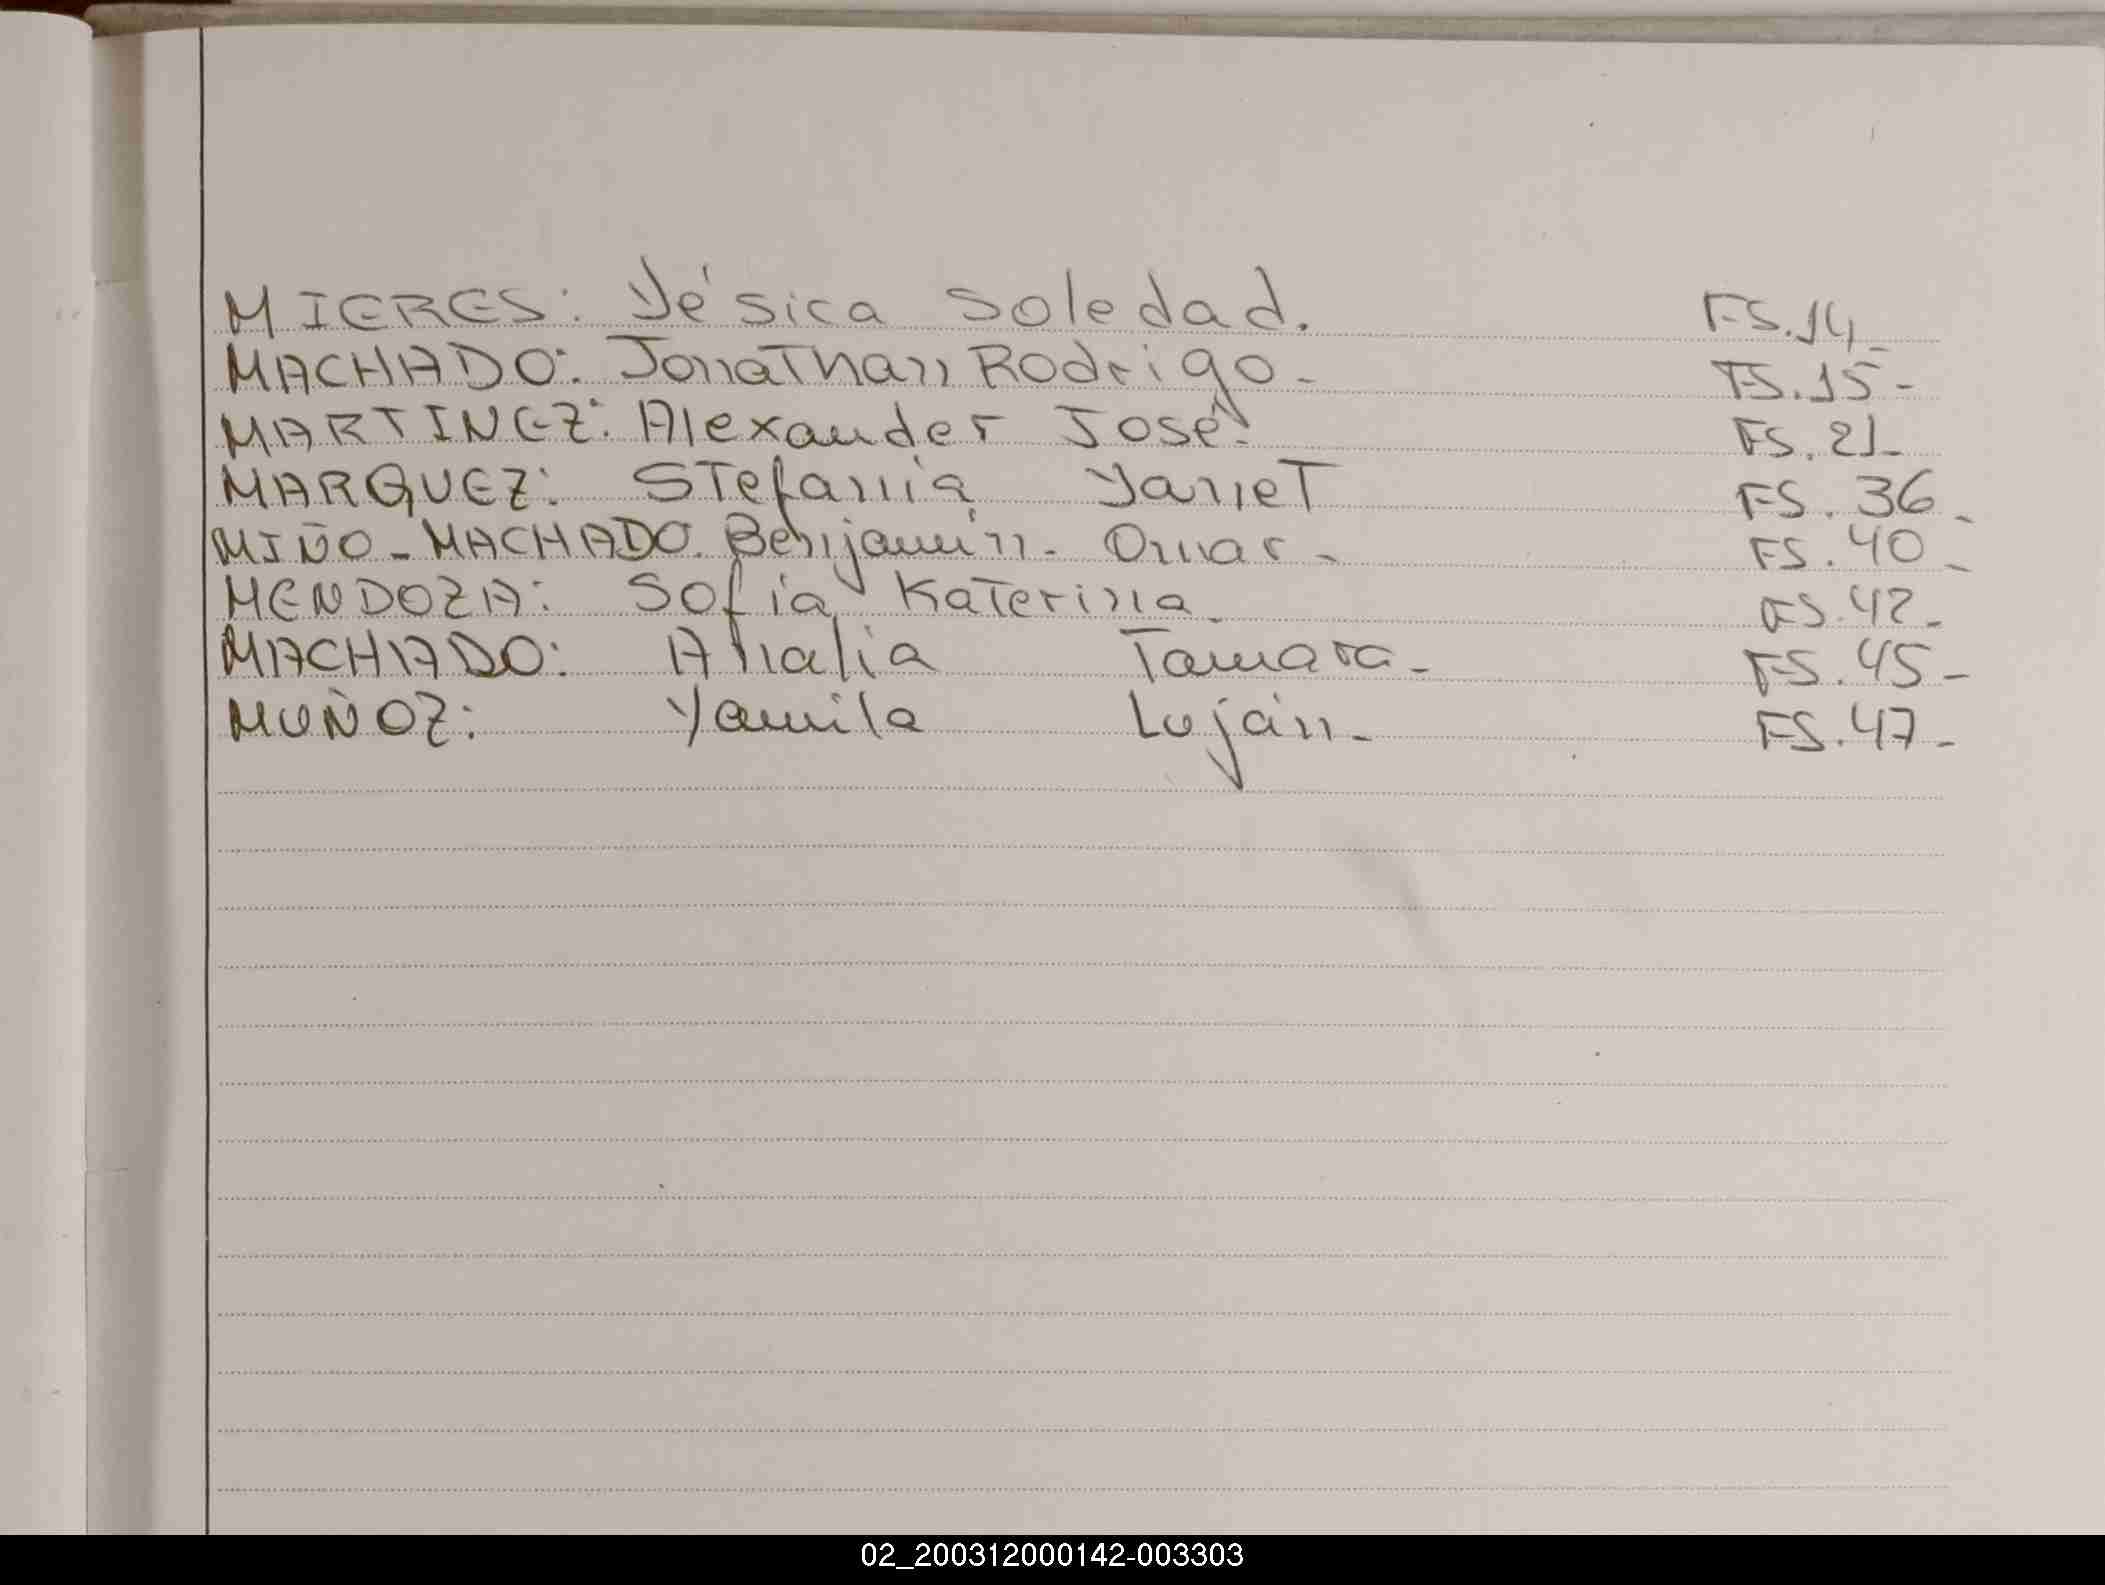 MIERES: Yésica Soledad. FS.14-
MACHADO: Jonathan Rodrigo- FS.15-
MARTINEZ: Alexander José. FS.21-
MARQUEZ: Stefania Yaniet FS.36-
MIÑO-MACHADO. Benjamín- Omar- FS.40-
MENDOZA: Sofía Katerina- FS.42-
MACHADO: Analia Tamara- FS.45-
MUÑOZ: Yamila Luján- FS.47-
02_200312000142-003303